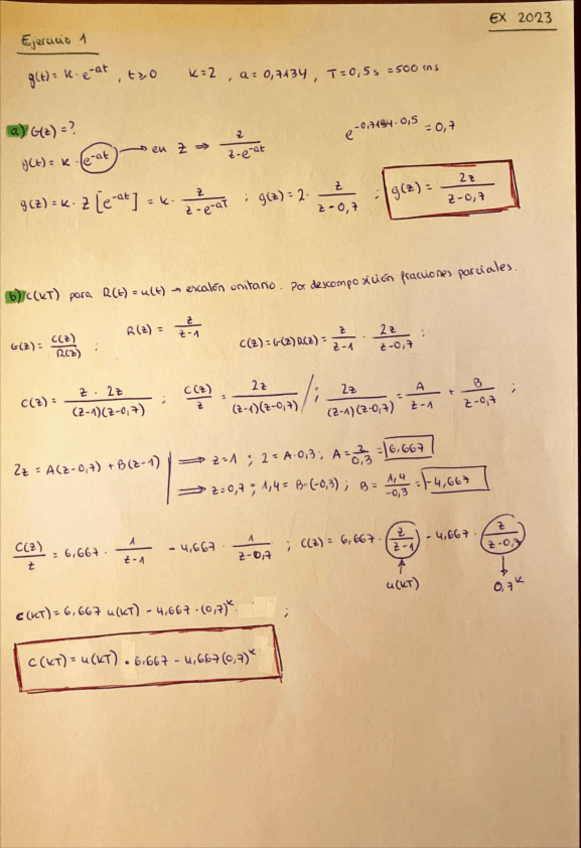 EX 2023
Ejercicio 1
g(t) = K · e^-at , t ≥ 0 K = 2 , a = 0,7134 , T = 0,5 s = 500 ms
a) G(z) = ? e^-0,7134·0,5 = 0,7
g(t) = K · e^-at → en z ⇒ z/(z-e^-at)
g(z) = K · Z [e^-at] = K · z/(z-e^-aT) ; g(z) = 2 · z/(z-0,7) ; g(z) = 2z/(z-0,7)
b) C(KT) para R(t) = u(t) → escalón unitario. Por descomposición fracciones parciales.
G(z) = C(z)/R(z) ; R(z) = z/(z-1) C(z) = G(z) R(z) = z/(z-1) · 2z/(z-0,7) ;
C(z) = z · 2z/((z-1)(z-0,7)) ; C(z)/z = 2z/((z-1)(z-0,7)) / ; 2z/((z-1)(z-0,7)) = A/(z-1) + B/(z-0,7) ;
2z = A(z-0,7) + B(z-1) ⇒ z=1 ; 2 = A·0,3 ; A = 2/0,3 = 6,667
⇒ z=0,7 ; 1,4 = B·(-0,3) ; B = 1,4/-0,3 = -4,667
C(z)/z = 6,667 · 1/(z-1) - 4,667 · 1/(z-0,7) ; C(z) = 6,667 · z/(z-1) - 4,667 · z/(z-0,7)
u(KT) 0,7^K
c(KT) = 6,667 u(KT) - 4,667 · (0,7)^K ;
C(KT) = u(KT) · 6,667 - 4,667(0,7)^K